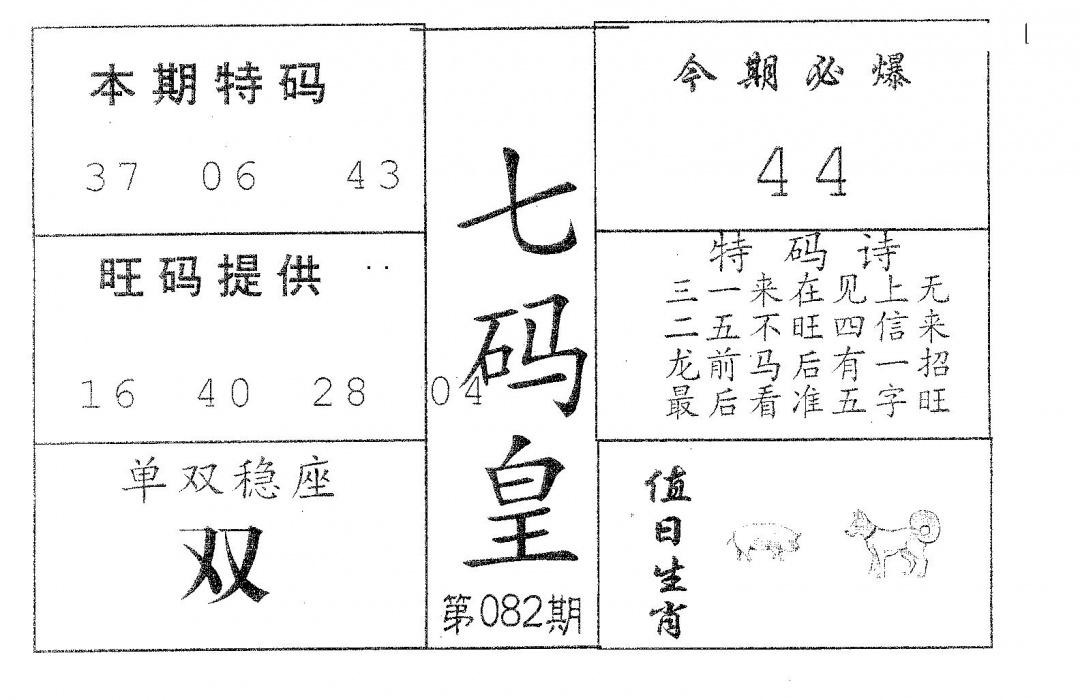 本期特码
37 06 43
旺码提供 ..
16 40 28 04
单双稳座
双
七码皇
第082期
今期必爆
44
特码诗
三一来在见上无
二五不旺四信来
龙前马后有一招
最后看准五字旺
值日生肖